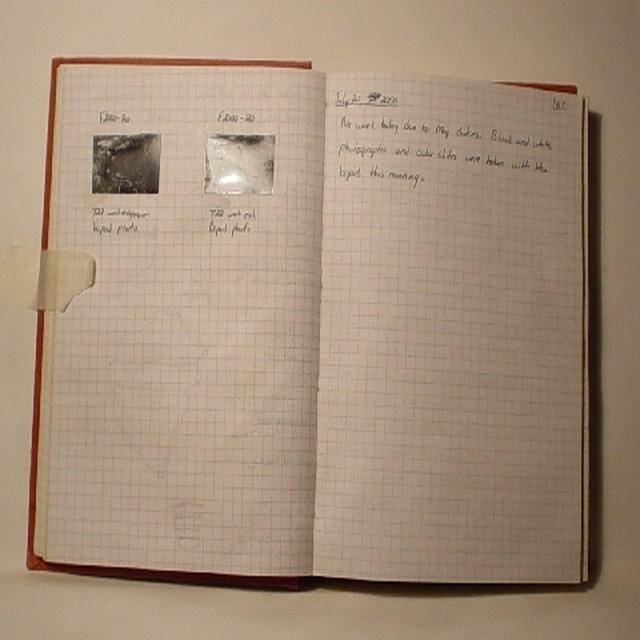 F2000-20
F2000-20
bipod photo
bipod photo
July 20 2000
167
No work today due to May duties. Black and white
photographs and color slides were taken with the
bipod this morning.